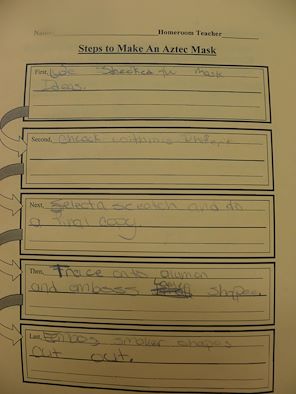 Name Homeroom Teacher
Steps to Make An Aztec Mask
First, Mask
Ideas.
Second, Check with
Next, Select a scetch and do
a final copy.
Then, Trace onto
and emboss shapes.
Last, smaller shapes
cut out.